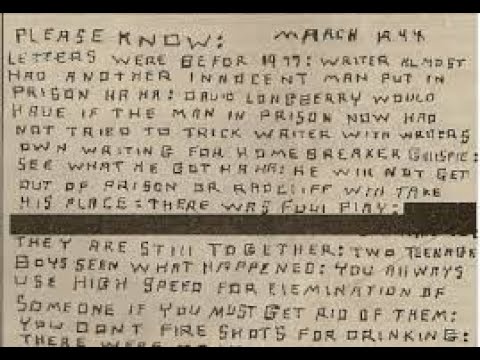 PLEASE KNOW: MARCH
LETTERS WERE BEFOR 1977: WRITER ALMOST
HAD ANOTHER INNOCENT MAN PUT IN
PRISON HA HA: DAVID LONGBERRY WOULD
HAVE IF THE MAN IN PRISON NOW HAD
NOT TRIED TO TRICK WRITER WITH WRITERS
OWN WRITING FOR HOMEBREAKER GILLISPIE:
SEE WHAT HE GOT HAHA: HE WILL NOT GET
OUT OF PRISON OR RADCLIFF WILL TAKE
HIS PLACE: THERE WAS FOUL PLAY:
THEY ARE STILL TOGETHER: TWO TEENAGE
BOYS SEEN WHAT HAPPENED: YOU ALLWAYS
USE HIGH SPEED FOR ELEMINATION OF
SOMEONE IF YOU MUST GET RID OF THEM:
YOU DONT FIRE SHOTS FOR DRINKING:
THERE WERE